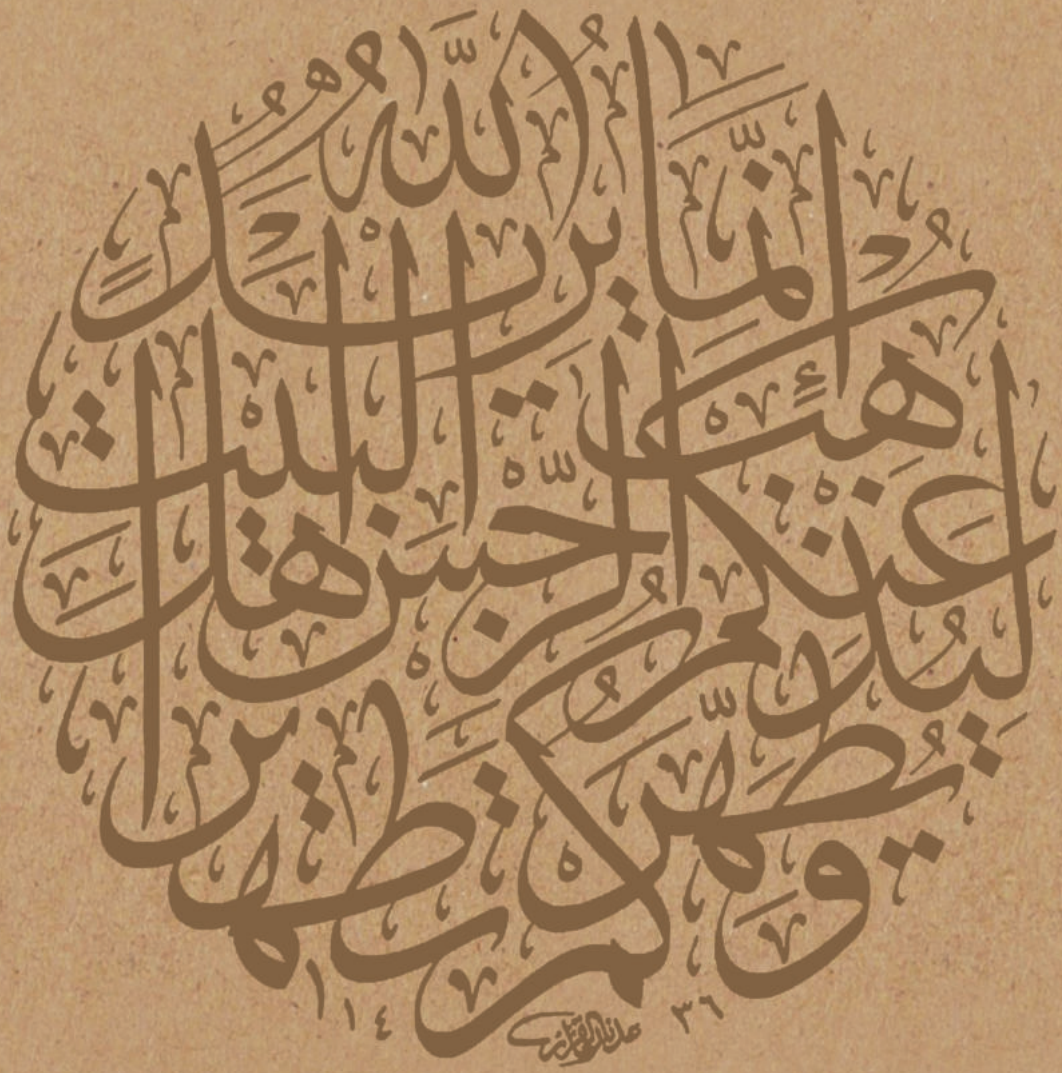 إِنَّمَا يُرِيدُ اللَّهُ
لِيُذْهِبَ عَنْكُمُ الرِّجْسَ أَهْلَ الْبَيْتِ
وَيُطَهِّرَكُمْ تَطْهِيرًا
٣٦
١١٤